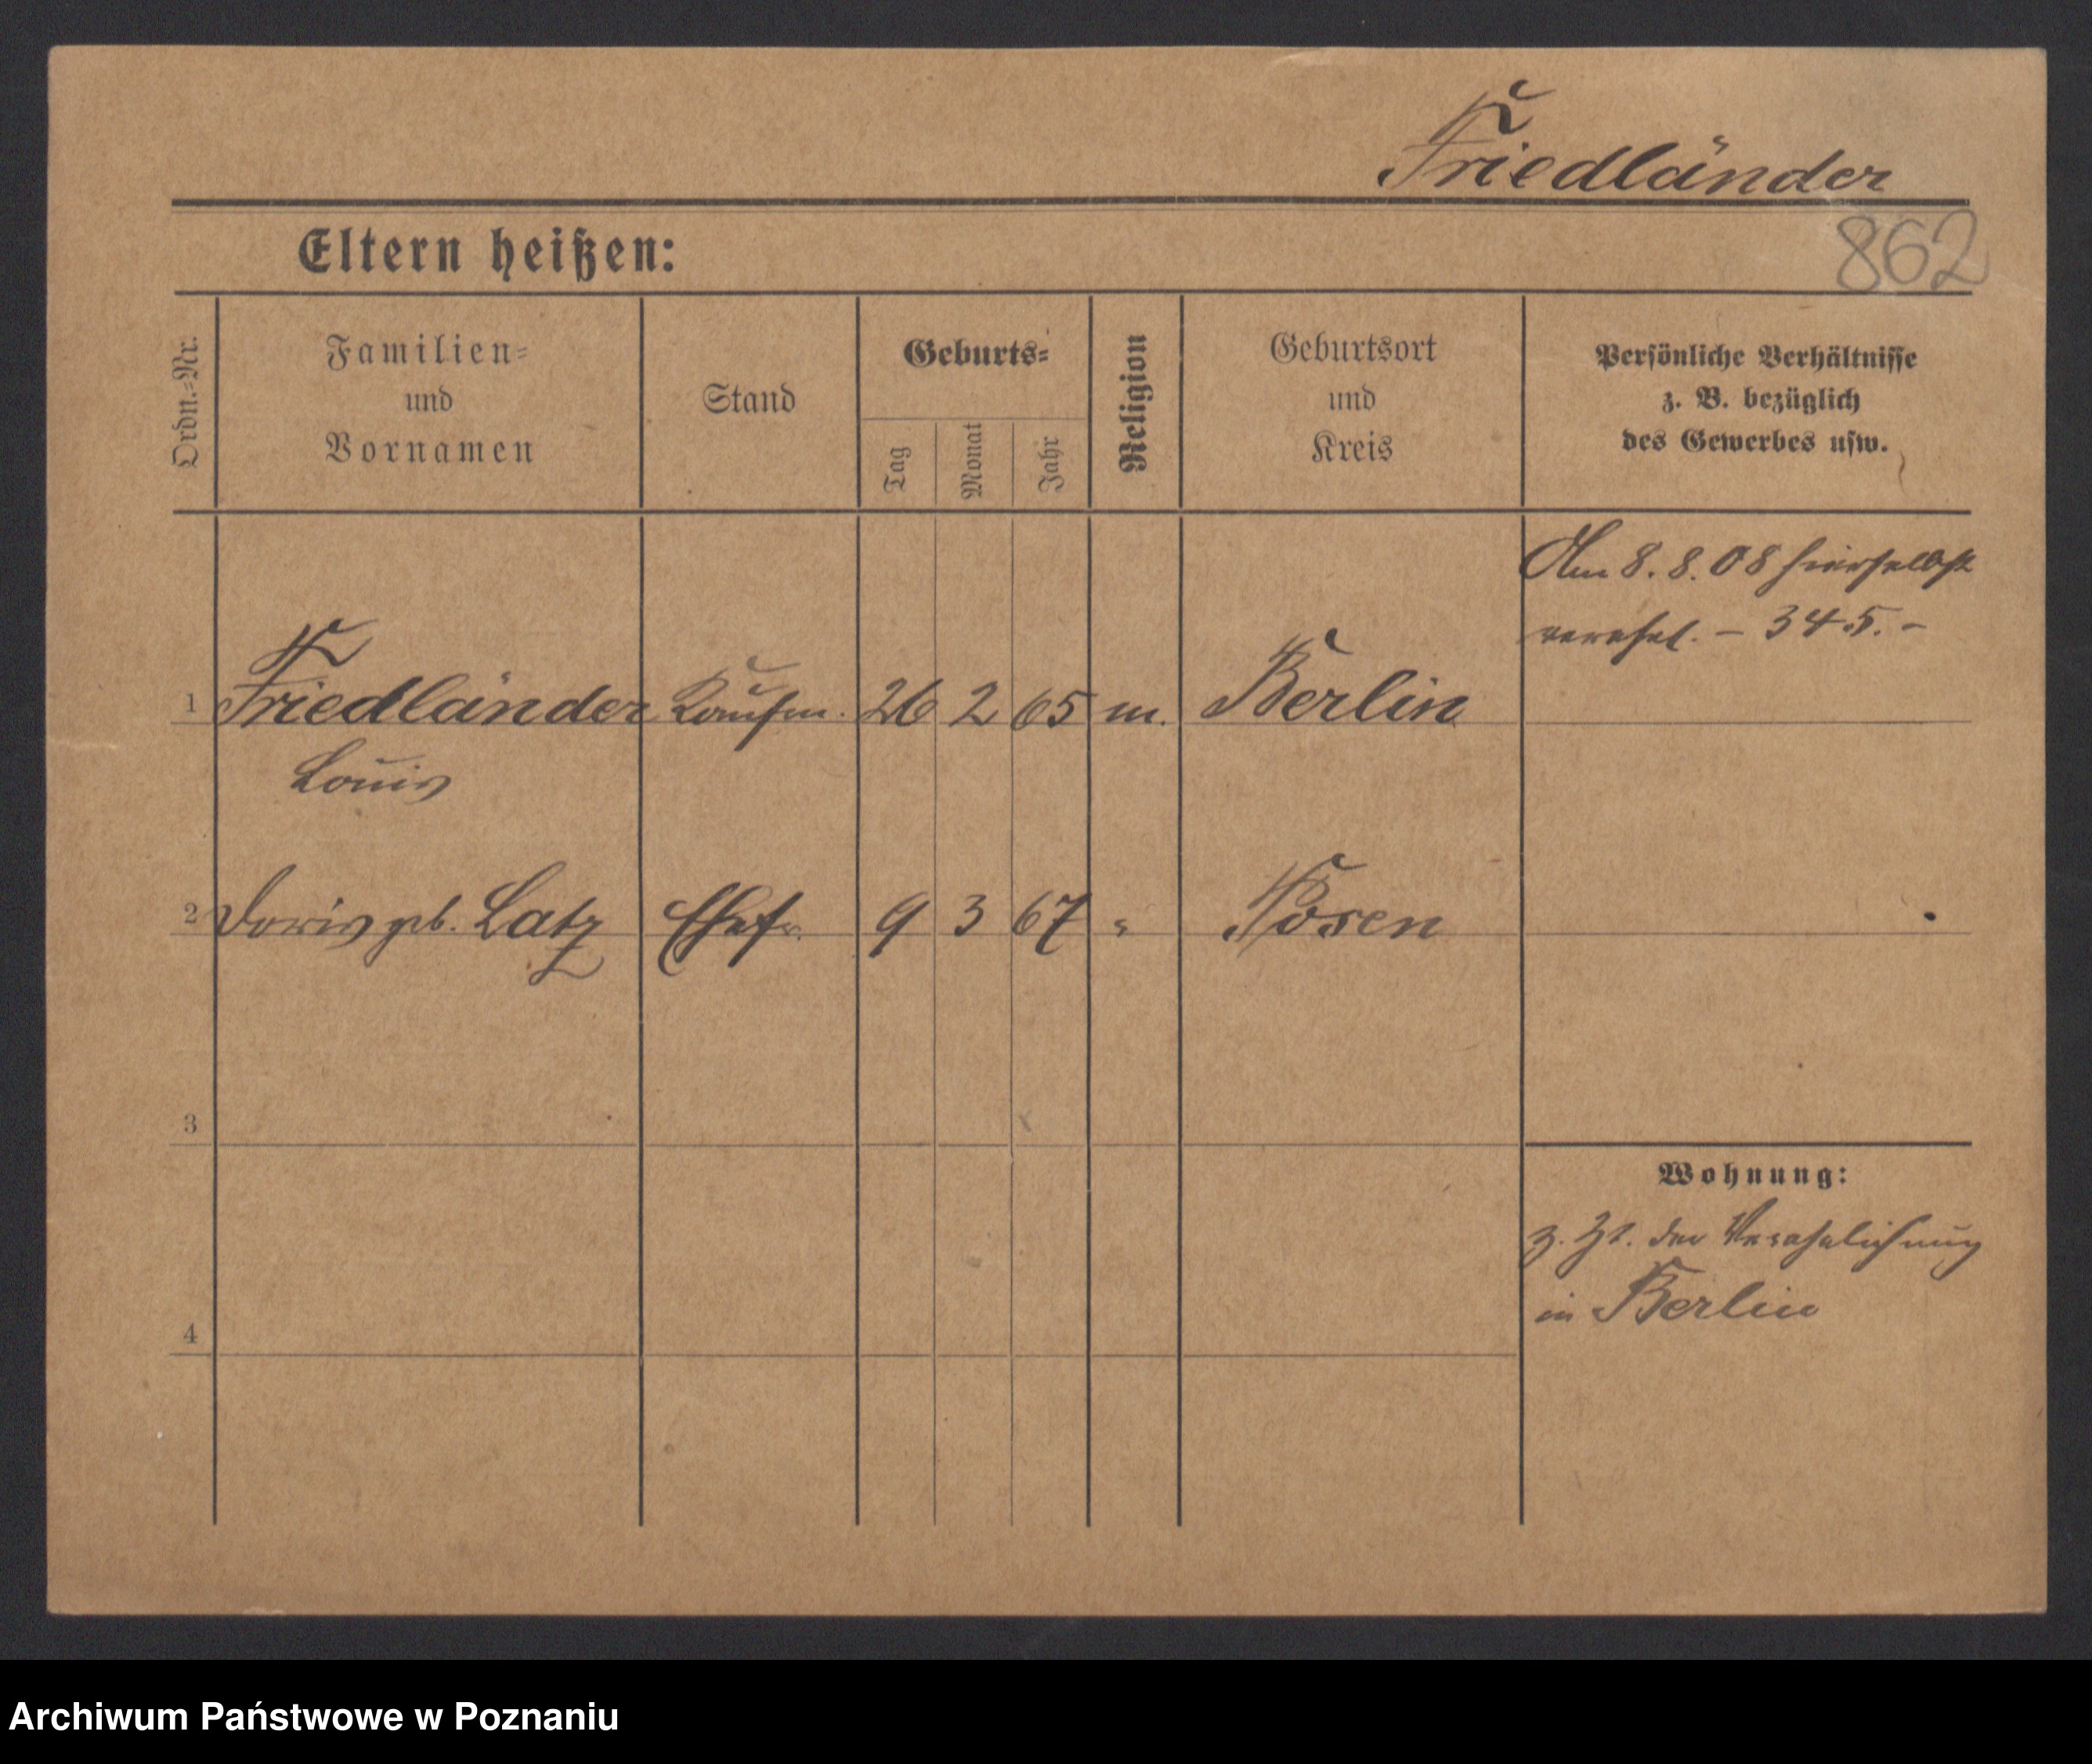 Friedländer
Eltern heißen:
862
Ordn.=Nr.
Familien=
und
Vornamen
Stand
Geburts=
Tag
Monat
Jahr
Religion
Geburtsort
und
Kreis
Persönliche Verhältnisse
z. B. bezüglich
des Gewerbes usw.
Am 8. 8. 08 hierselbst
verehel. – 345. –
1 Friedländer Kaufm. 26 2 65 m. Berlin
Louis
2 Doris geb. Latz Ehefr. 9 3 67 " Posen
3
Wohnung:
z. Zt. der Verehelichung
in Berlin
4
Archiwum Państwowe w Poznaniu